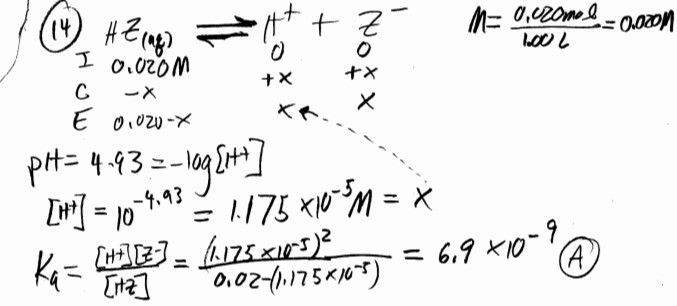 (14) HZ(aq) ⇌ H⁺ + Z⁻ M = 0.020mol / 1.00 L = 0.020M
I 0.020M 0 0
C -x +x +x
E 0.020-x x x
pH = 4.93 = -log[H+]
[H+] = 10^-4.93 = 1.175 x10^-5 M = x
Ka = [H+][Z-] / [HZ] = (1.175 x10^-5)^2 / 0.02-(1.175 x10^-5) = 6.9 x10^-9 (A)